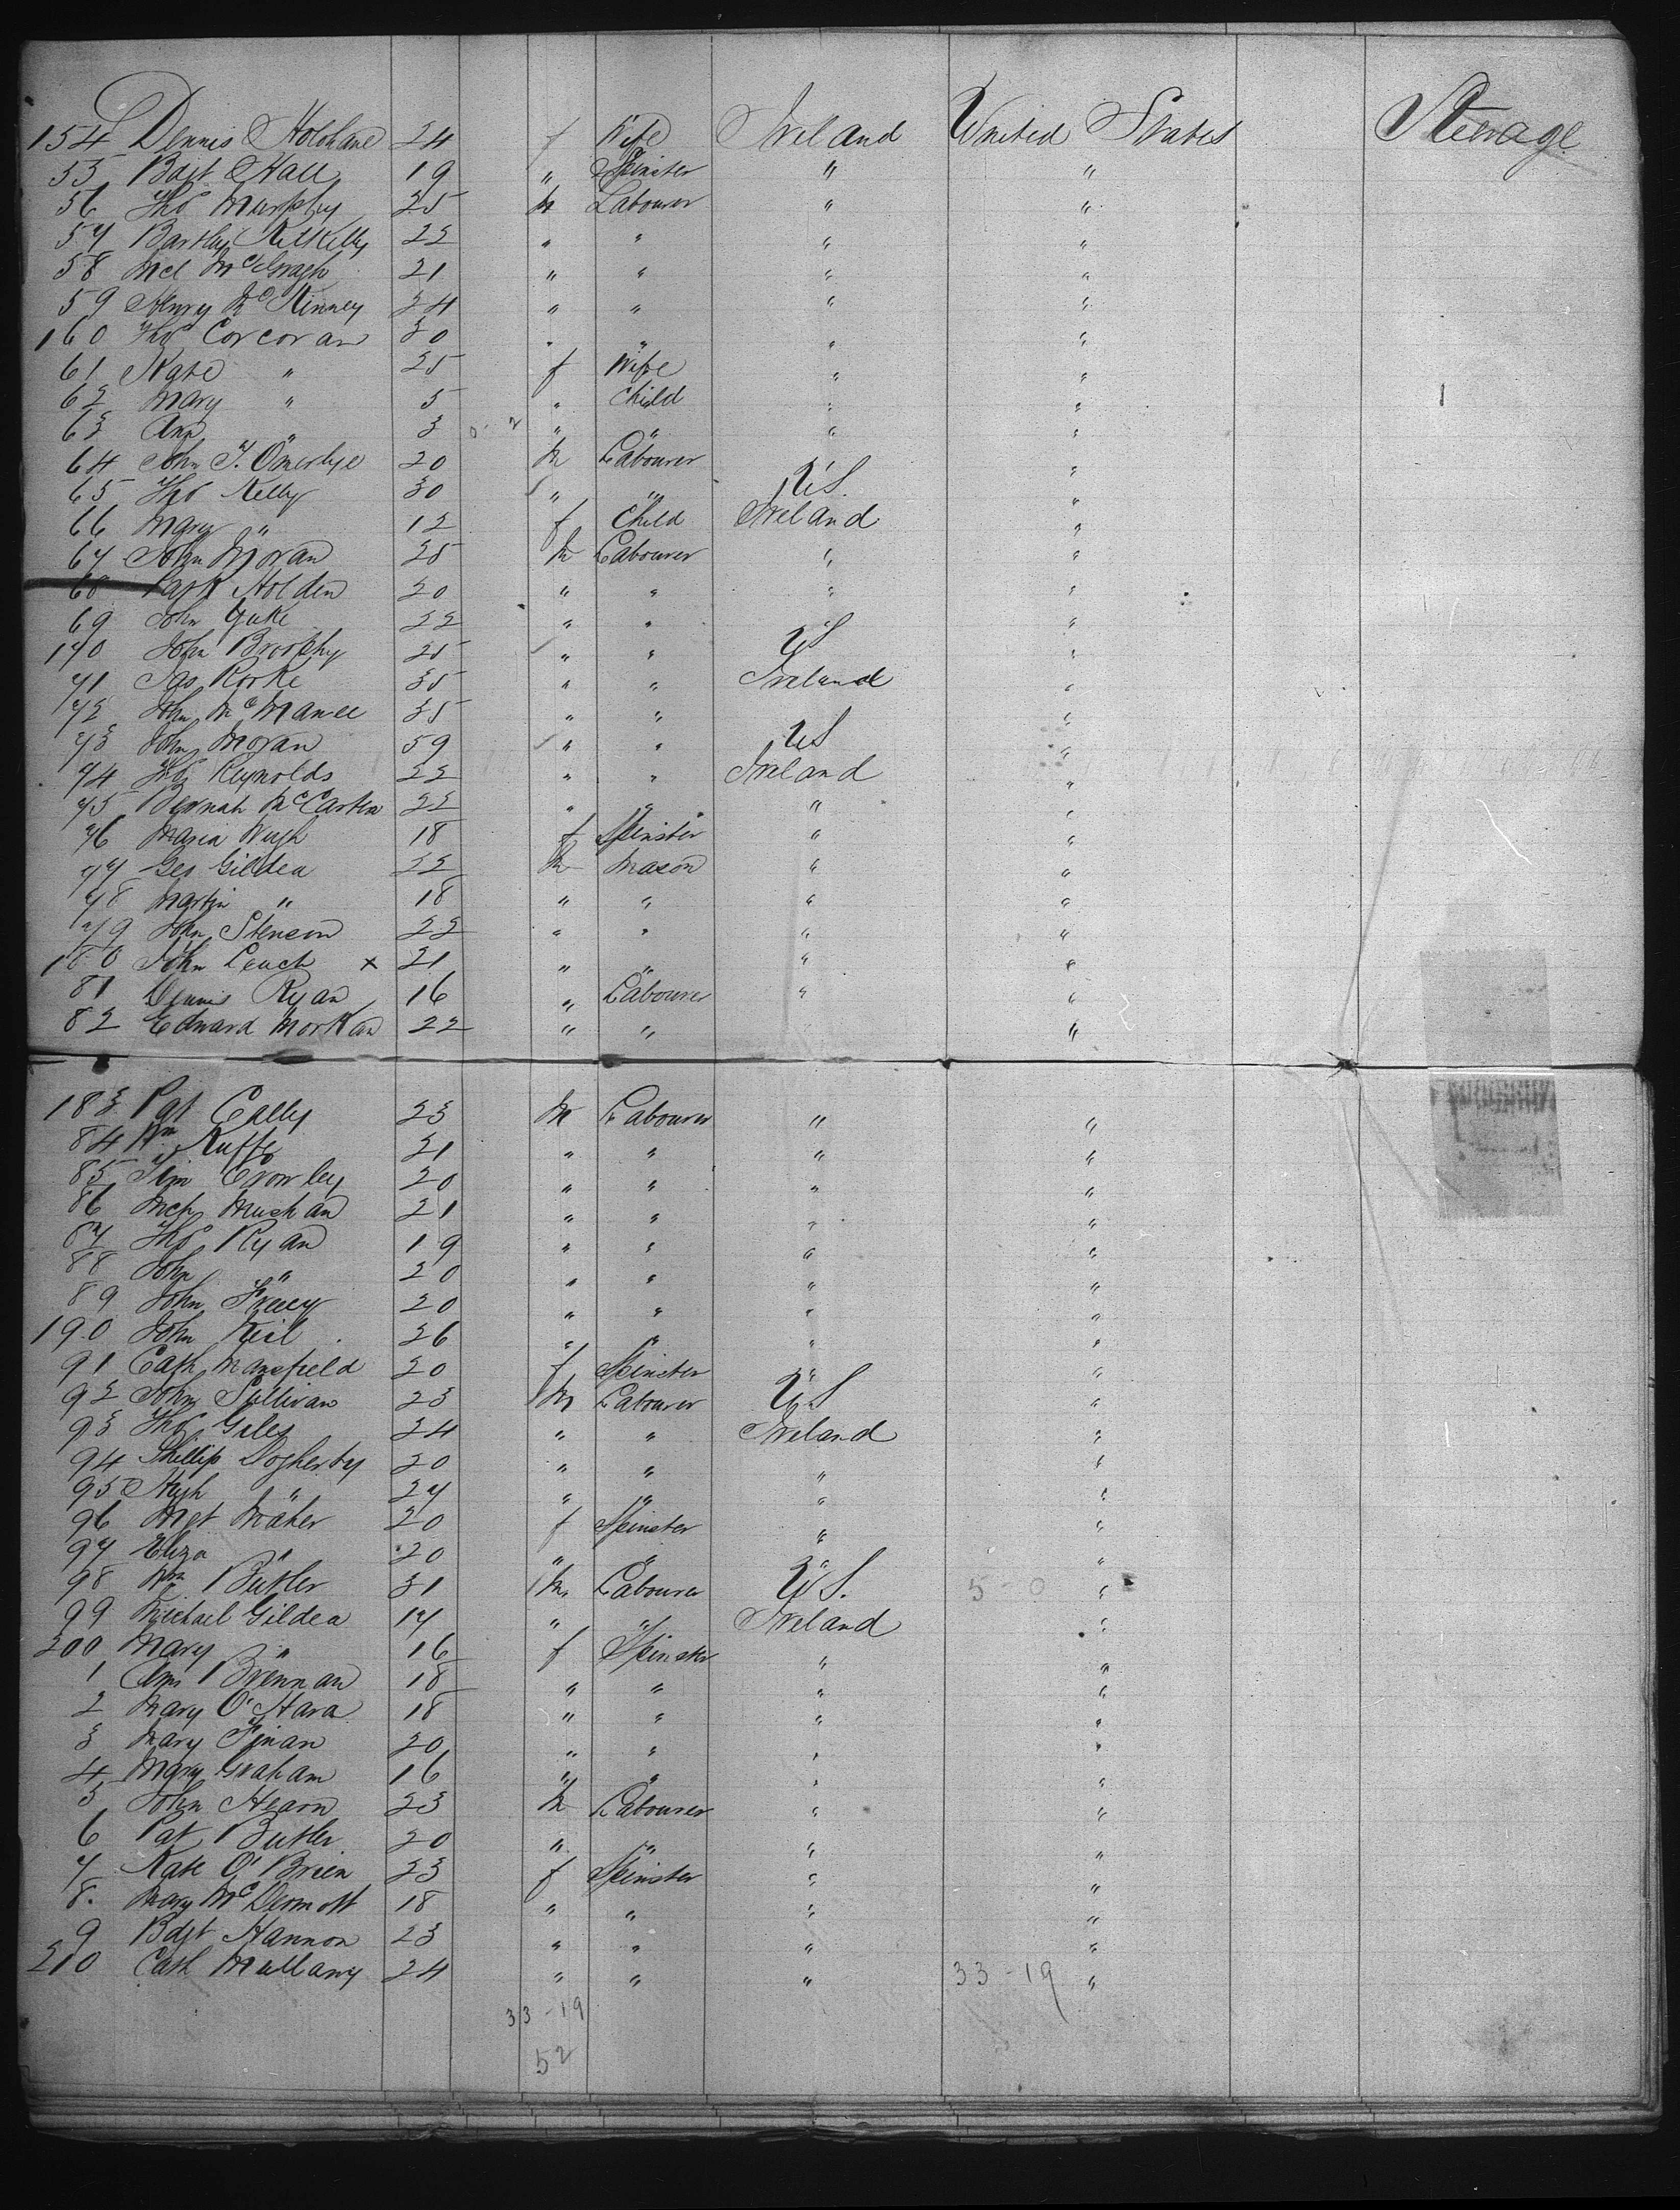 154 Dennis Holohane 24 f Wife Ireland United States Steerage
55 Bgt Hall 19 " Spinster " "
56 Thos Murphy 25 M Labourer " "
57 Bartley Kilkelly 22 " " " "
58 Mcl McGragh 21 " " " "
59 Henry McKinney 24 " " " "
160 Thos Corcoran 30 " " " "
61 Kate " 25 f Wife " "
62 Mary " 5 " Child " "
63 Ann " 3 " " " "
64 John 20 M Labourer "
65 Thos Kelly 30 " " U.S. "
66 Mary " 12 f Child Ireland "
67 John Moran 25 M Labourer " "
68 Holden 20 " " " "
69 John 22 " " "
170 John Brophy 25 " " US "
71 Jas Rorke 35 " " Ireland "
72 John 35 " " "
73 John Moran 59 " " US "
74 Thos Reynolds 22 " " Ireland "
75 McCartin 22 " " " "
76 Maria 18 f Spinster " "
77 Geo Gildea 22 M Mason " "
78 Martin " 18 " " " "
79 John Stenson 22 " " " "
180 John Leuch x 21 " " " "
81 Dennis Ryan 16 " Labourer " "
82 Edward Morkan 22 " " "
183 Pat Cally 23 M Labourer " "
84 Wm 21 " " " "
85 Tim Crowley 20 " " " "
86 Mch 21 " " " "
87 Thos Ryan 19 " " " "
88 John " 20 " " " "
89 John 20 " " " "
190 John Keil 26 " " " "
91 Cath Mansfield 20 f Spinster "
92 John Sullivan 23 M Labourer US "
93 Thos Giles 24 " " Ireland "
94 Phillip Dogherty 20 " " " "
95 Hugh " 27 " " " "
96 Mgt Maher 20 f Spinster " "
97 Eliza " 20 " " " "
98 Wm Butler 31 M Labourer U.S. 5-0 "
99 Michael Gildea 17 " " Ireland "
200 Mary " 16 f Spinster " "
1 Ann Brennan 18 " " " "
2 Mary O'Hara 18 " " " "
3 Mary Finan 20 " " " "
4 Mary Graham 16 " " " "
5 John Hearn 23 M Labourer " "
6 Pat Butler 20 " " " "
7 Kate O'Brien 23 f Spinster " "
8. Mary McDermott 18 " " " "
9 Bdgt Hannon 23 " " " "
210 Cath Mullany 24 " " " 33-19 "
33-19
52